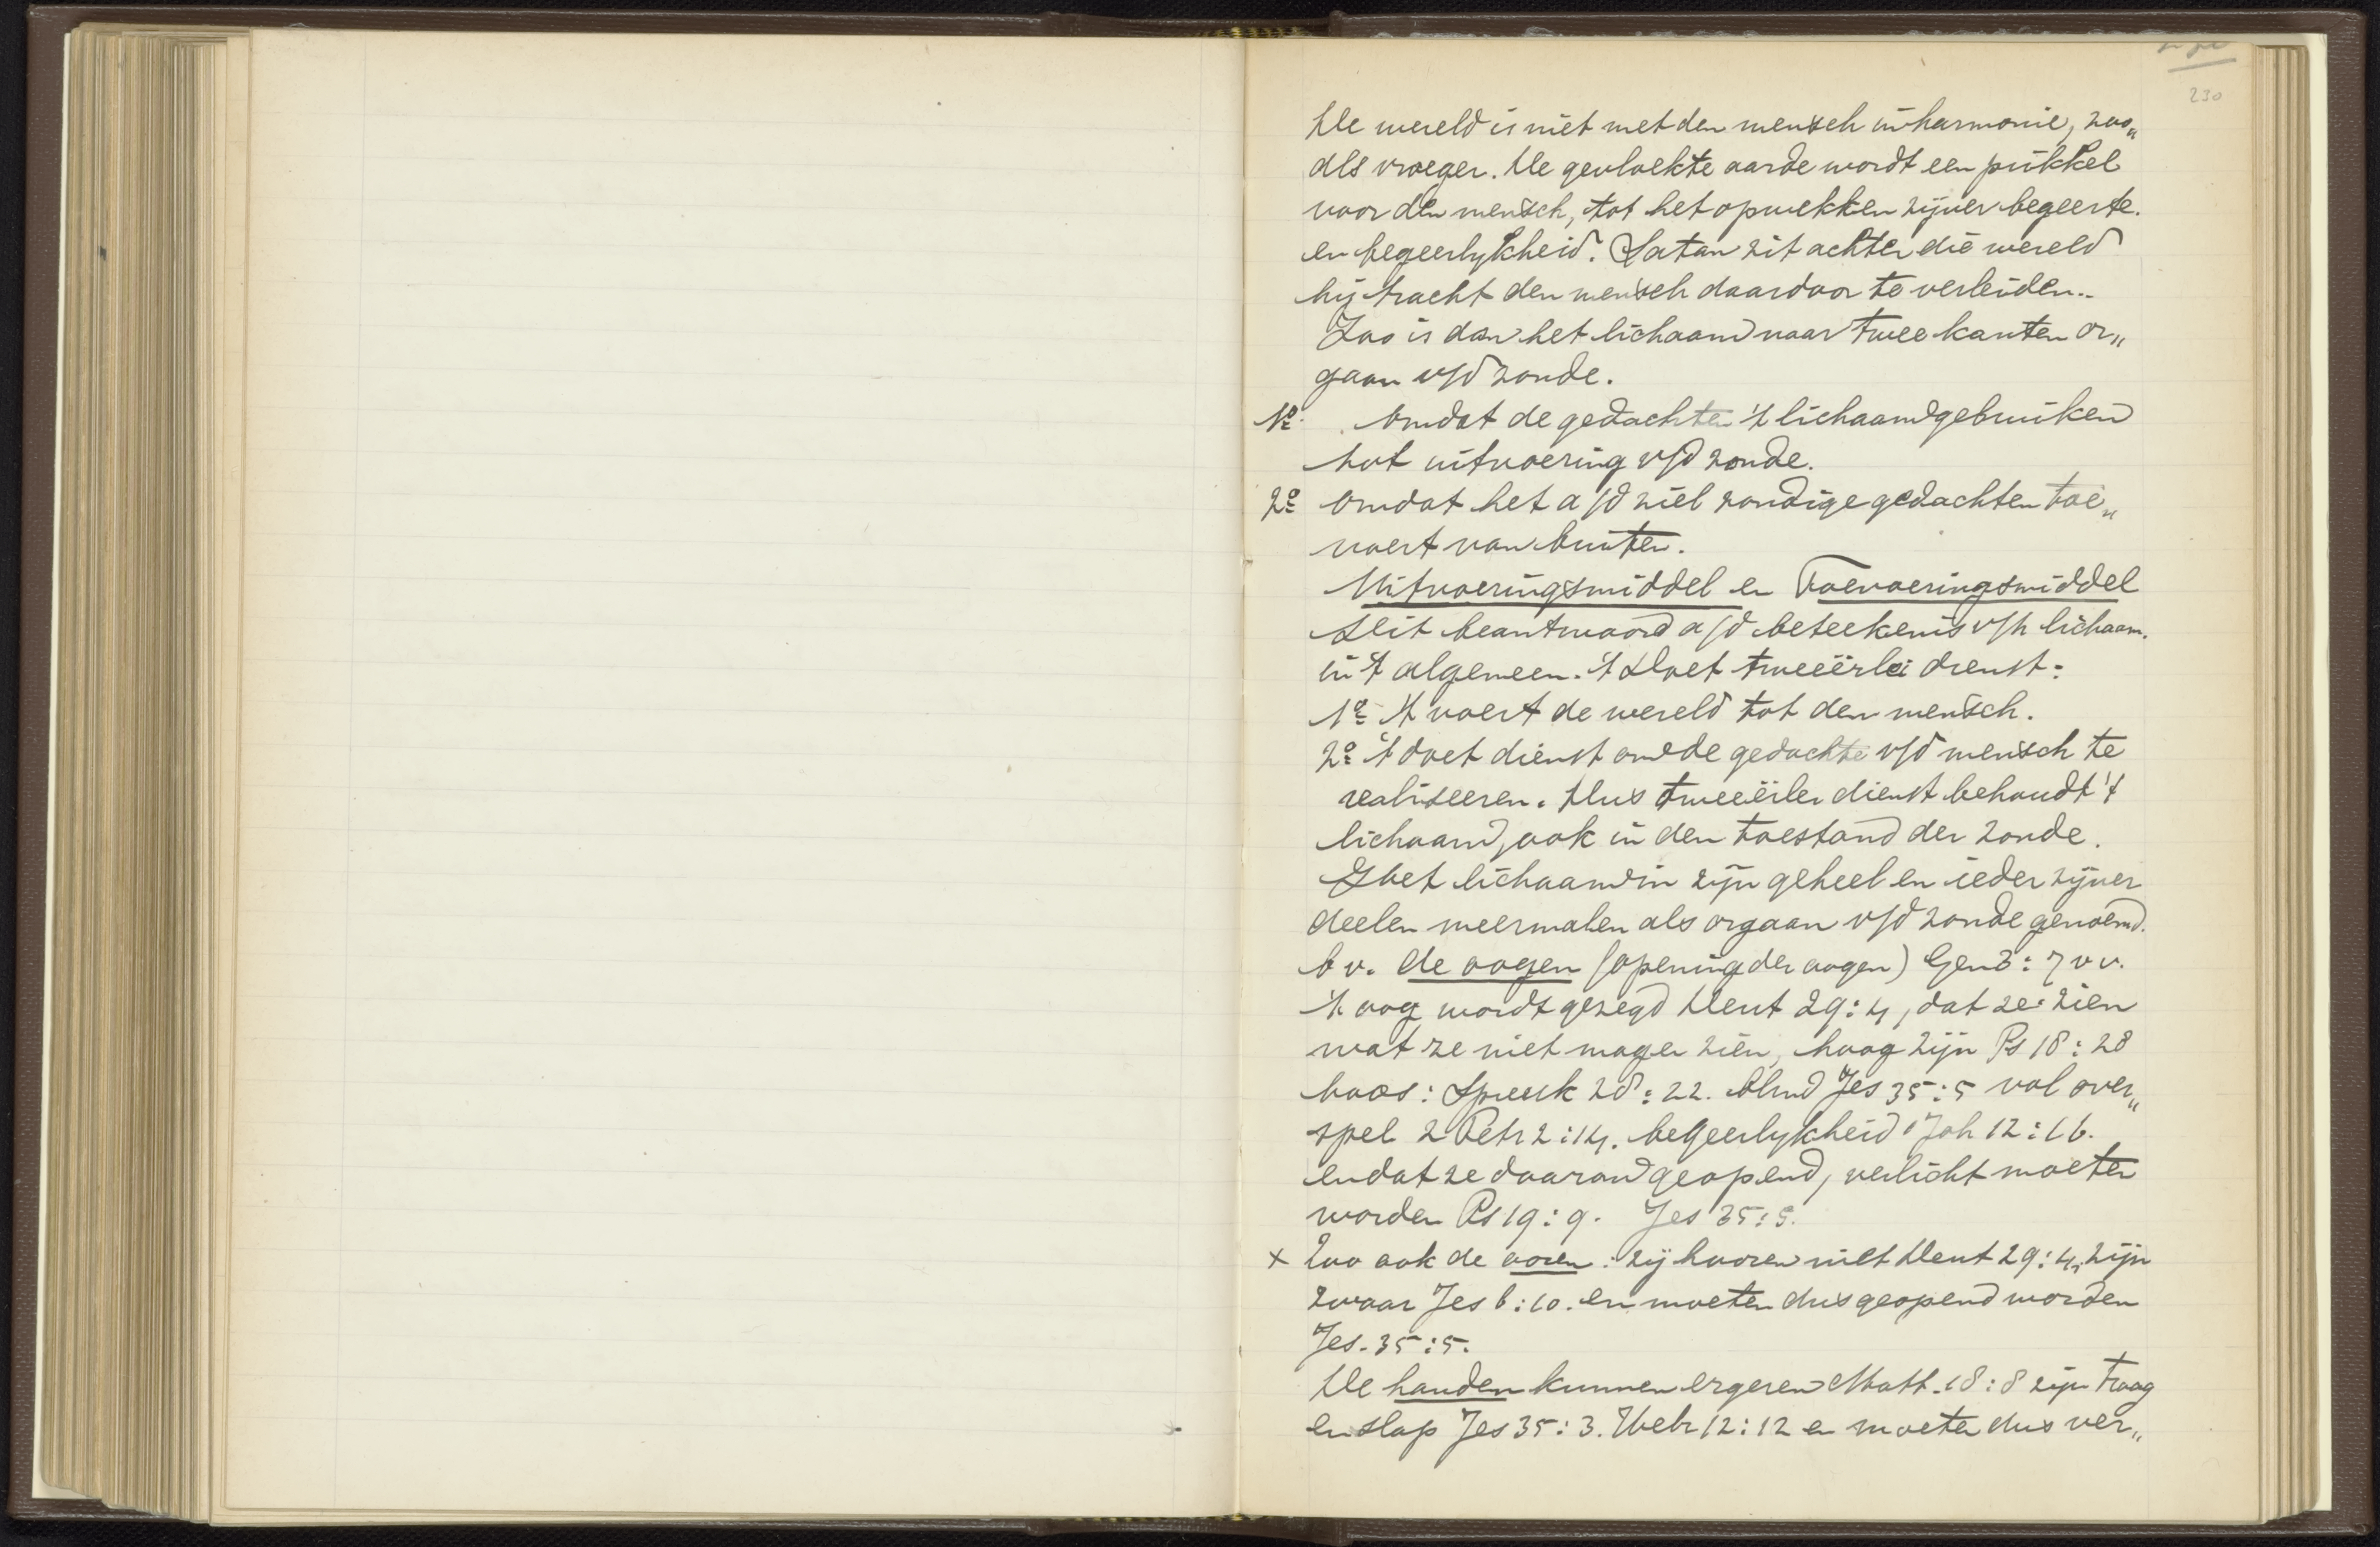 230
De wereld is niet met den mensch in harmonie, zoo„
als vroeger. De gevloekte aarde wordt een prikkel
voor den mensch, tot het opwekken zijner begeerte.
en begeerlykheid. Satan zit achter die wereld
hij tracht den mensch daardoor te verleiden..
Zoo is dan het lichaam naar twee kanten or„
gaan v/d zonde.
1º. Omdat de gedachten 't lichaam gebruiken
tot uitvoering v/d zonde.
2º Omdat het a/d ziel zondige gedachten toe„
voert van buiten.
Uitvoeringsmiddel en Toevoeringsmiddel
Dit beantwoord a/d beteekenis v/h lichaam.
in 't algemeen. 't Doet tweeërlei dienst:
1º 't voert de wereld tot den mensch.
2º 't doet dienst om de gedachte v/d mensch te
realiseeren. Dus tweeërlei dienst behoudt 't
lichaam, ook in den toestand der zonde.
Is het lichaam in zijn geheel en ieder zijner
deelen meermalen als orgaan v/d zonde genoemd.
b v. de oogen (opening der oogen) Gen 3:7 v v.
't oog wordt gezegd Deut 29:4, dat ze zien
wat ze niet mogen zien, hoog zijn Ps 18:28
boos: Spreuk 28:22. blind Jes 35:5 vol over„
spel 2 Petr 2:14. begeerlykheid 1 Joh 12:16.
en dat ze daarom geopend, verlicht moeten
worden Ps 19:9. Jes 35:5.
x Zoo ook de ooren: zij hooren niet Deut 29:4, zijn
zwaar Jes 6:10. en moeten dus geopend worden
Jes. 35:5.
De handen kunnen ergeren Matt. 18:8 zijn traag
en slap Jes 35:3. Hebr 12:12 en moeten dus ver„